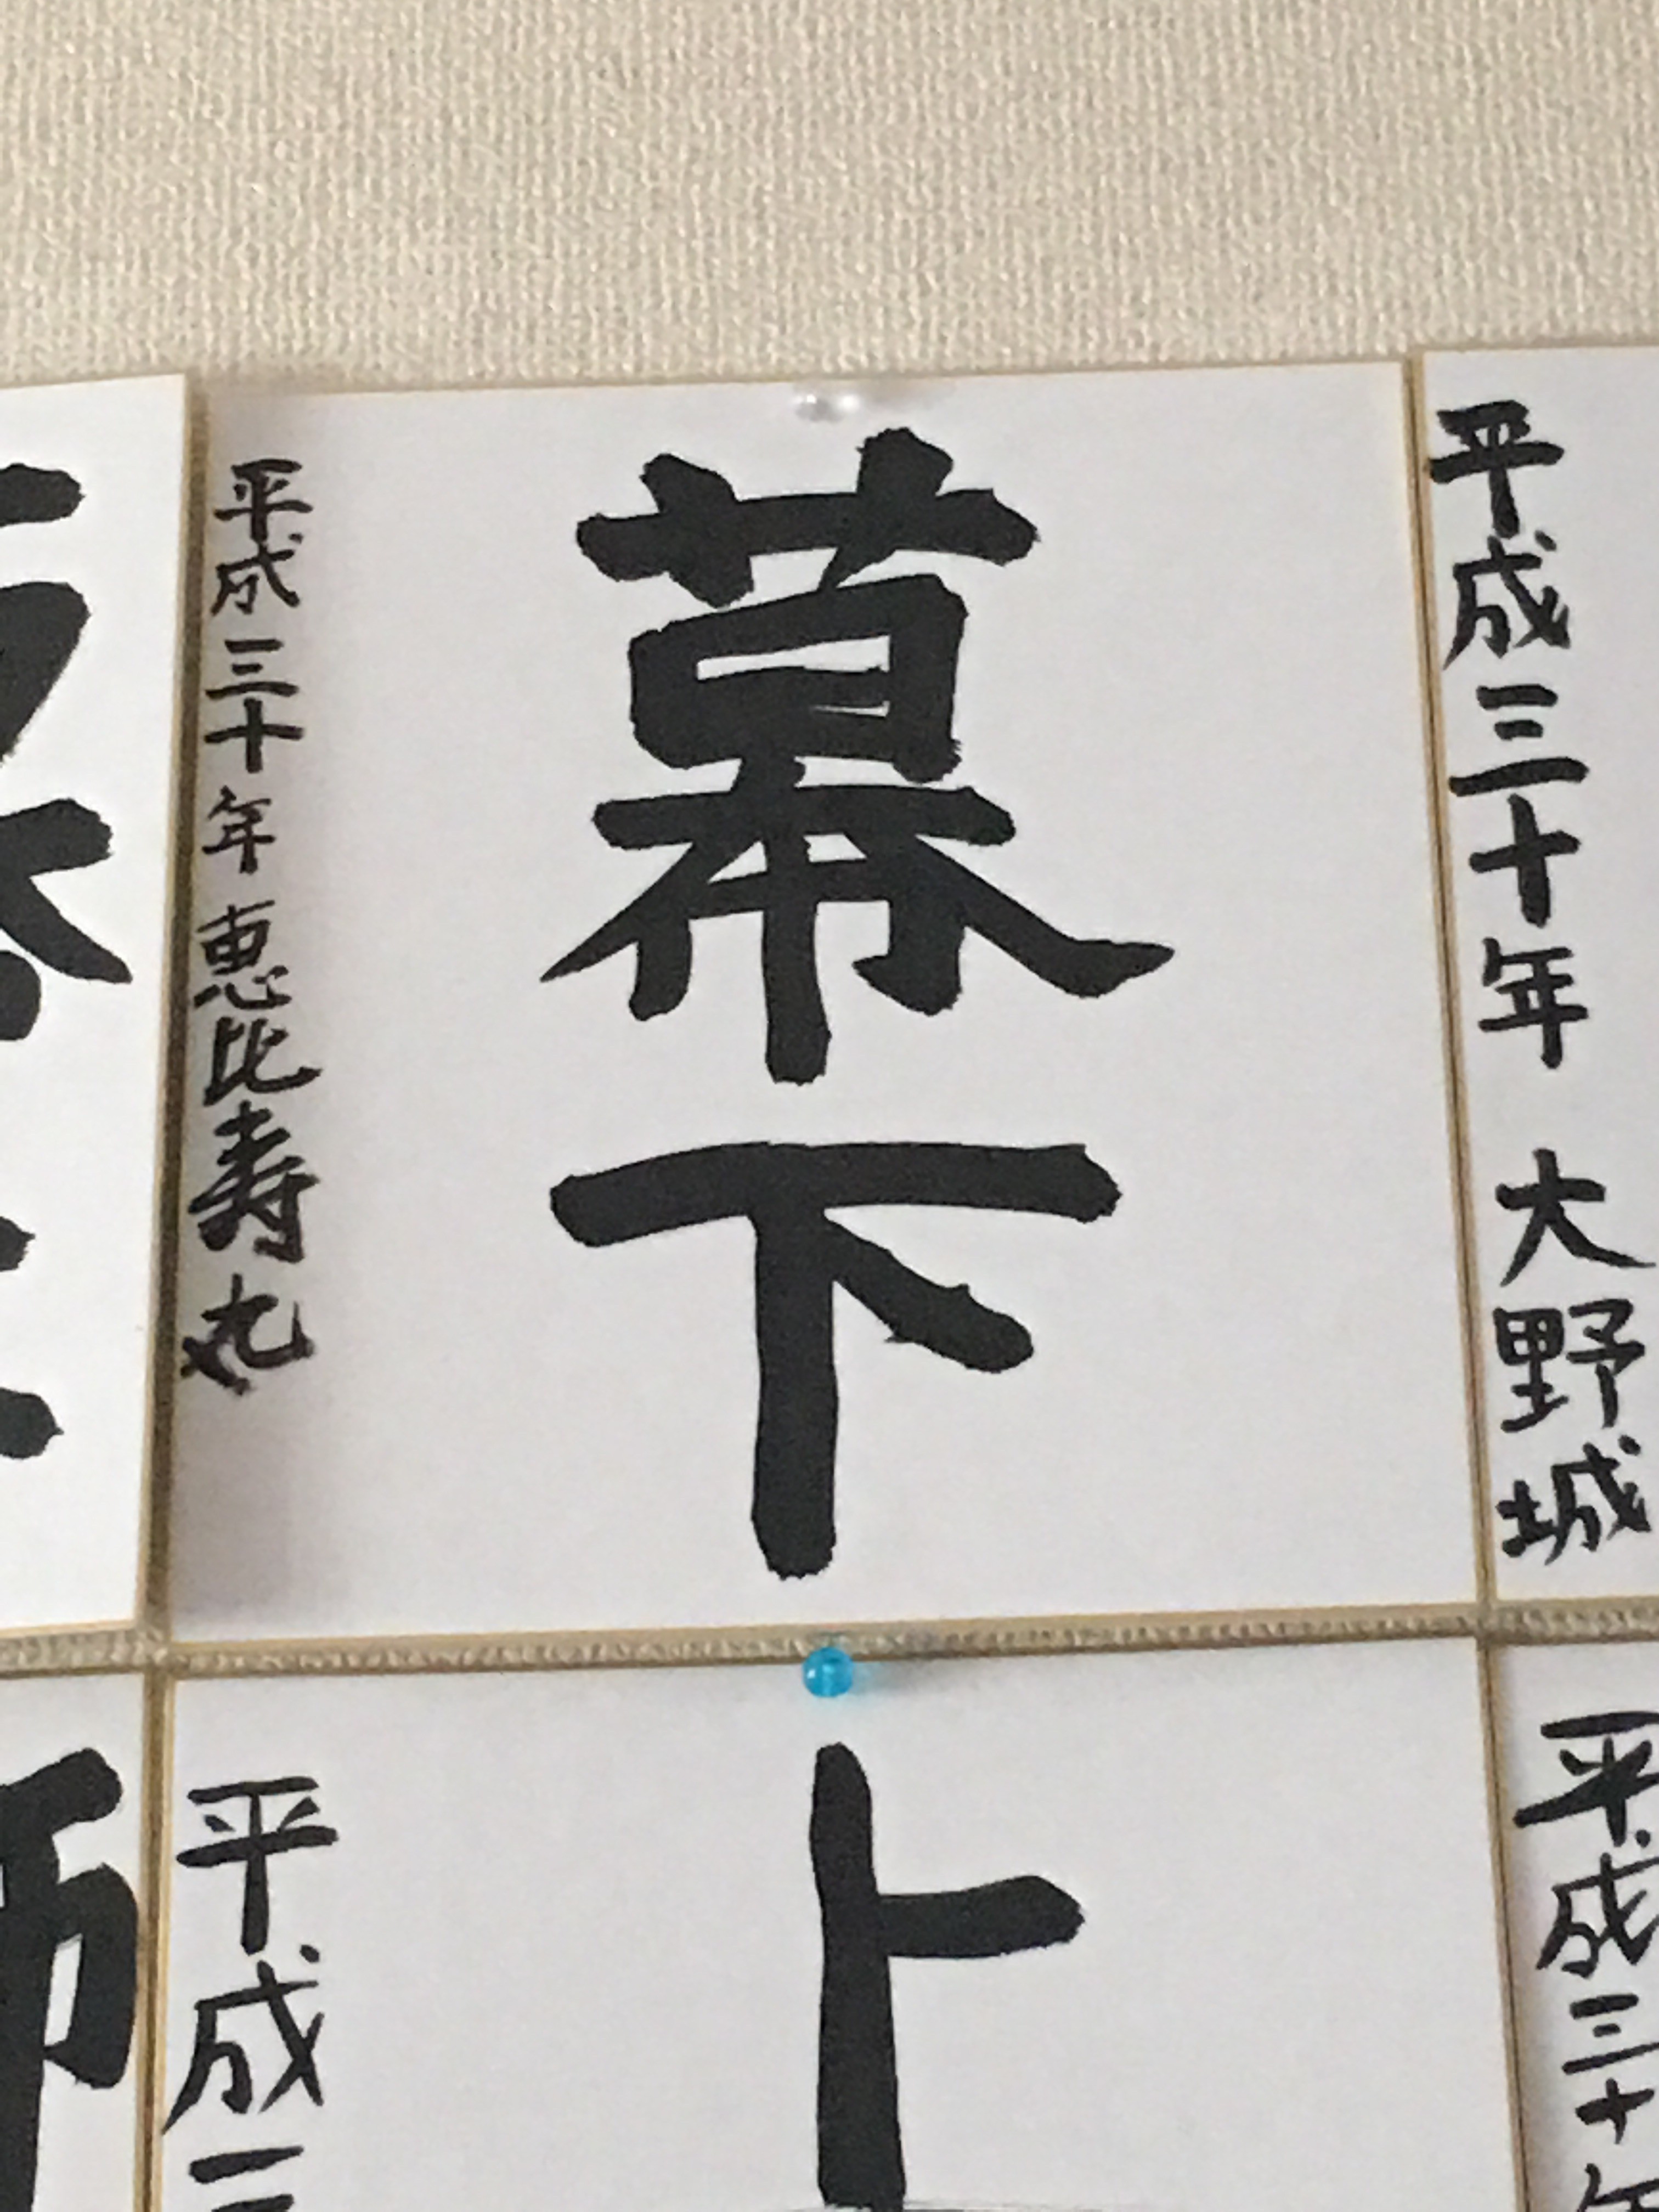 平成三十年 大野城
幕下
平成三十年 恵比寿丸
平成三十年
上
平成三